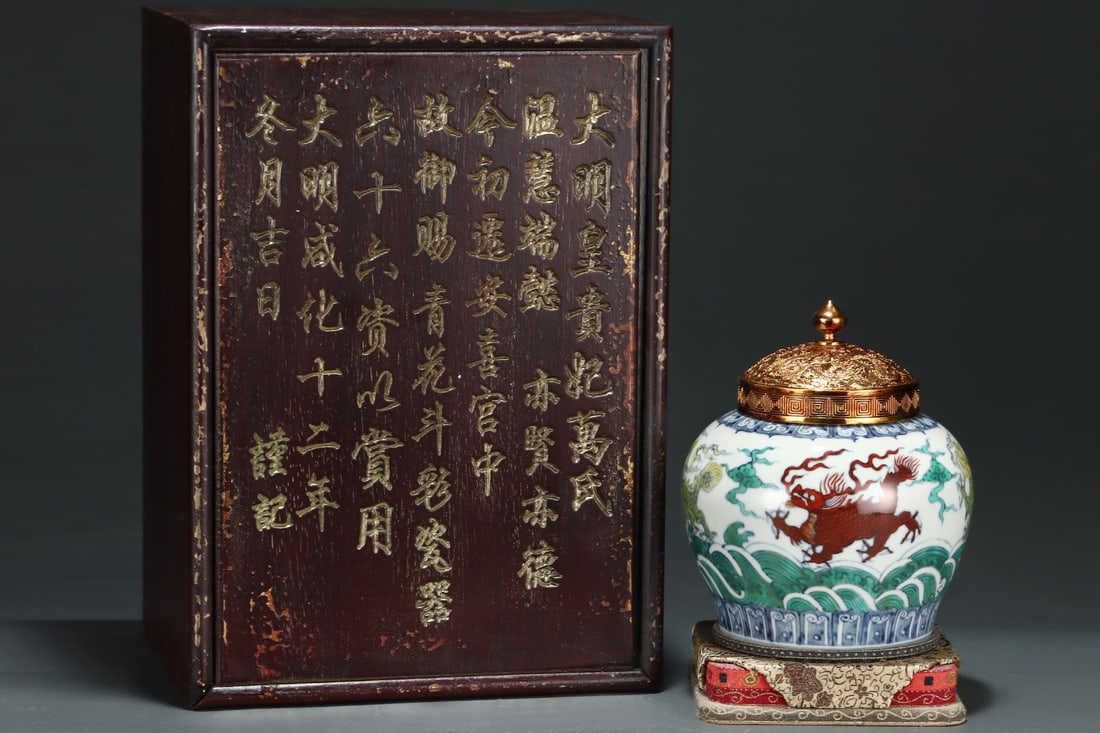 大明皇貴妃萬氏
温慧端懿 亦賢亦德
今初遷安喜宫中
故御賜青花斗彩瓷器
六十六资以赏用
大明成化十二年
冬月吉日 謹記